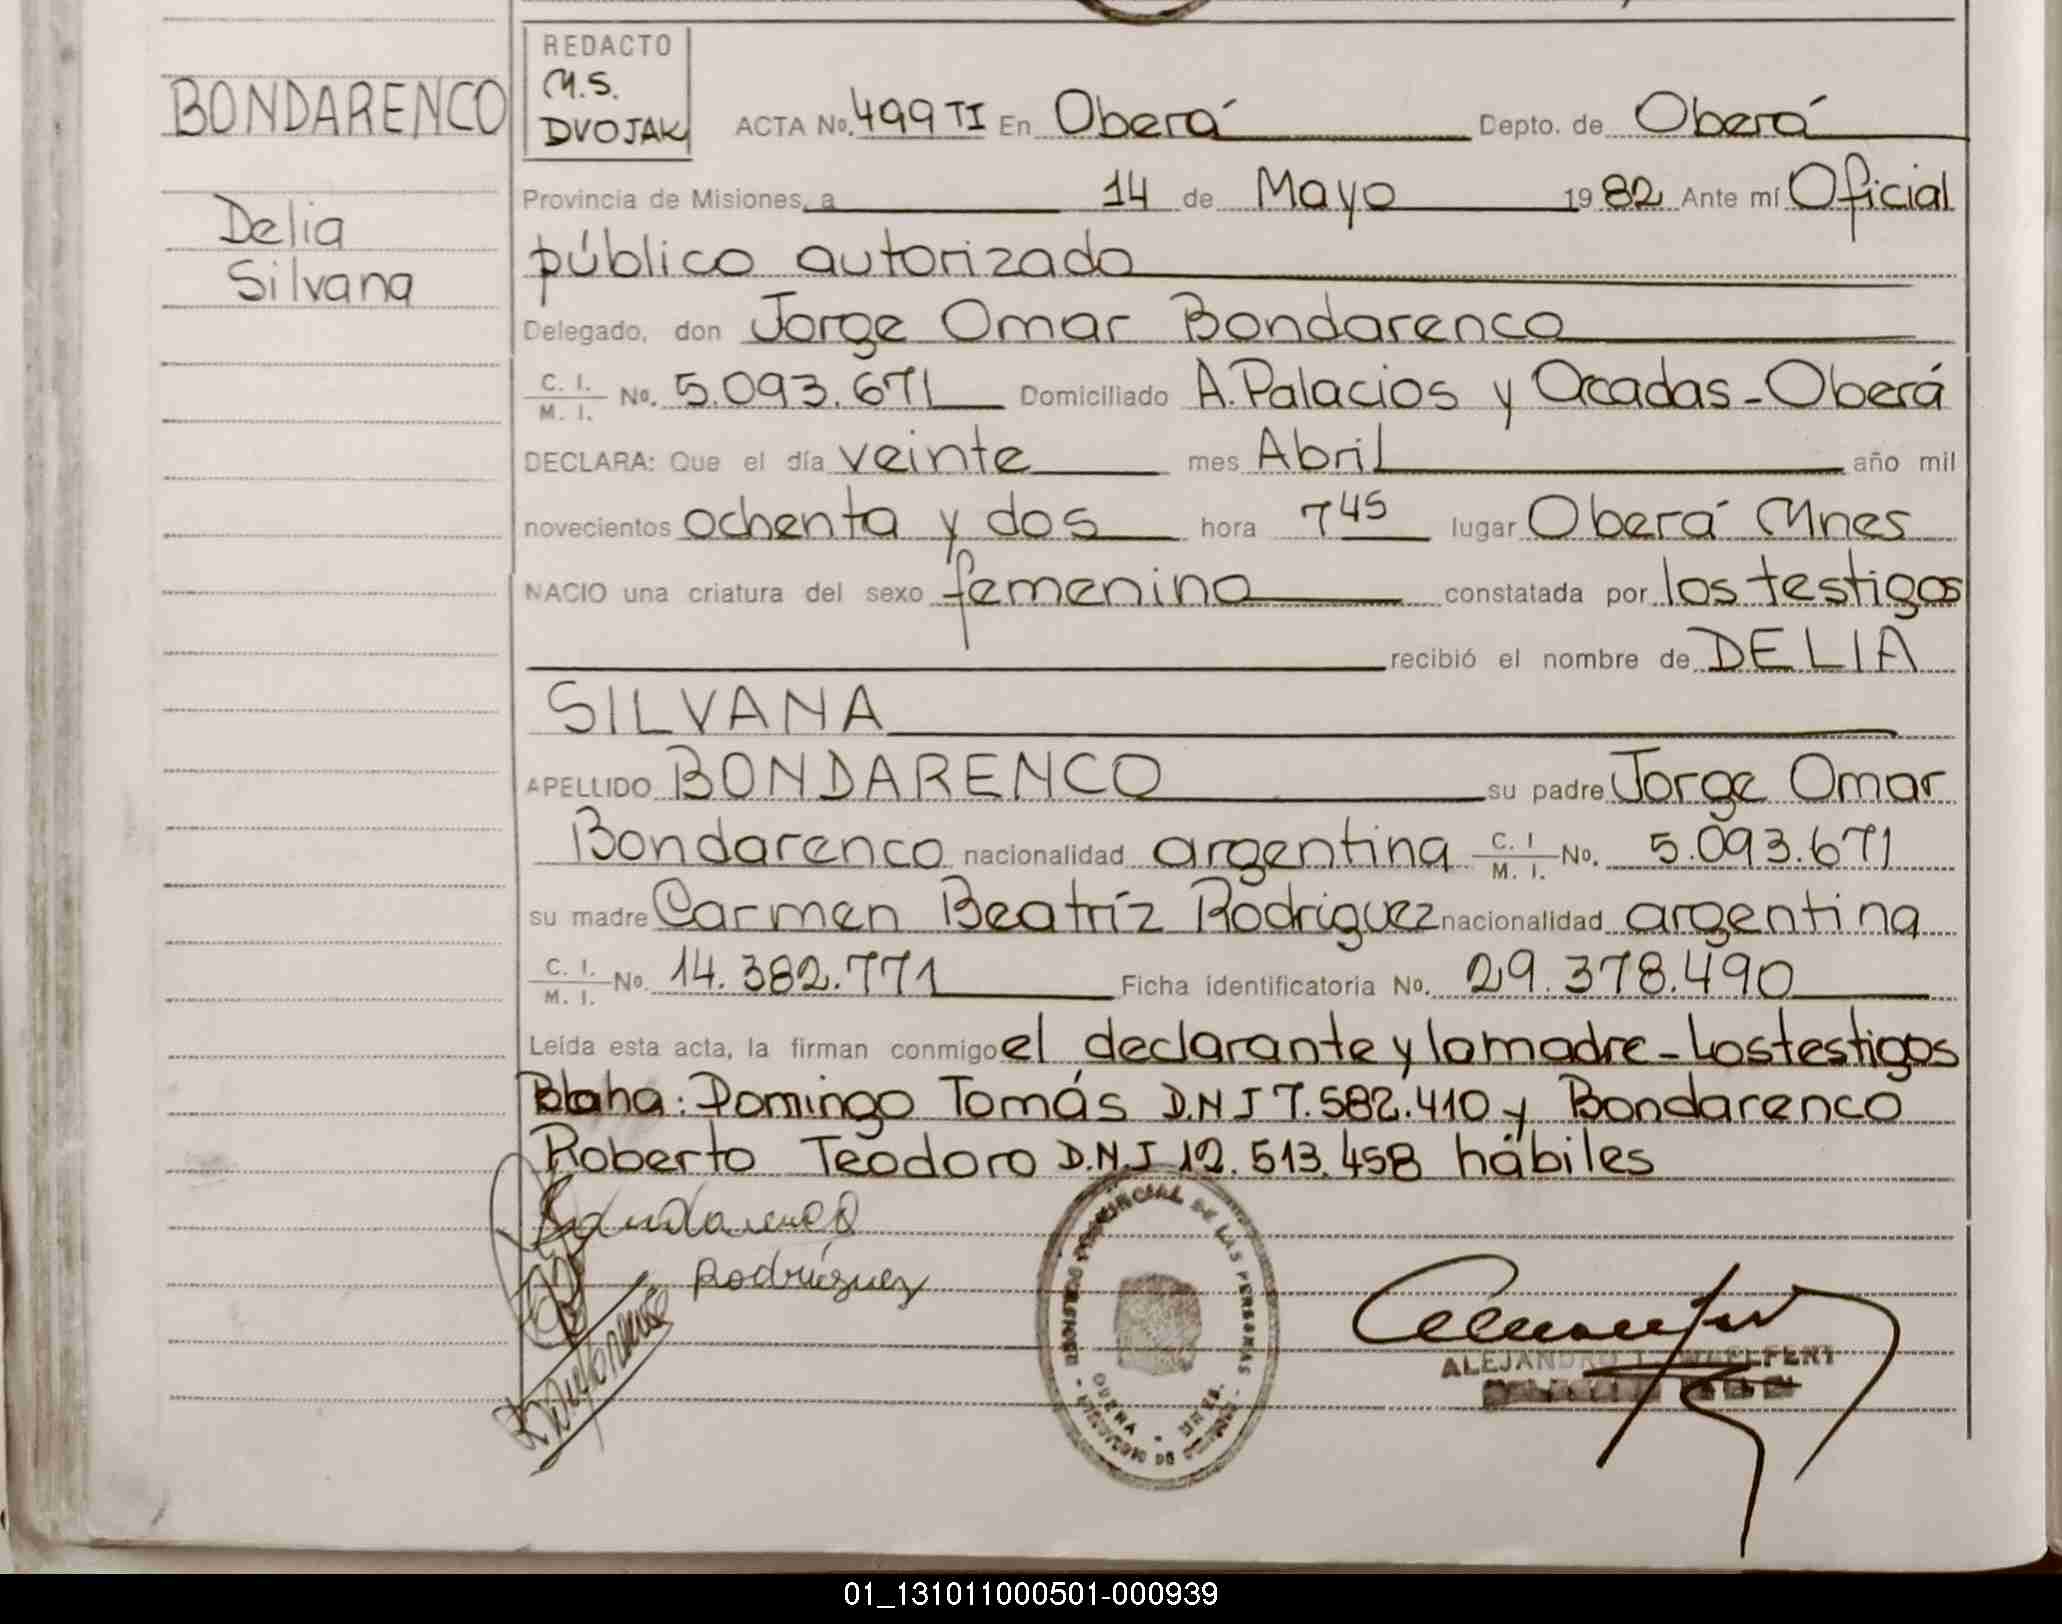 BONDARENCO
Delia
Silvana
REDACTO
M.S.
DVOJAK
ACTA No. 499 TI En Oberá Depto. de Oberá
Provincia de Misiones, a 14 de Mayo 1982 Ante mí Oficial
público autorizado
Delegado, don Jorge Omar Bondarenco
C. I. / M. I. No. 5.093.671 Domiciliado A. Palacios y Acadas - Oberá
DECLARA: Que el día veinte mes Abril año mil
novecientos ochenta y dos hora 7 45 lugar Oberá Mnes
NACIO una criatura del sexo femenino constatada por los testigos
recibió el nombre de DELIA
SILVANA
APELLIDO BONDARENCO su padre Jorge Omar
Bondarenco nacionalidad argentina C. I / M. I. No. 5.093.671
su madre Carmen Beatríz Rodriguez nacionalidad argentina
C. I. / M. I. No. 14.382.771 Ficha identificatoria No. 29.378.490
Leída esta acta, la firman conmigo el declarante y la madre - Los testigos
Blaha: Domingo Tomás D.N.I 7.582.410 y Bondarenco
Roberto Teodoro D.N.I 12.513.458 hábiles
Bondarenco
Rodríguez
REGISTRO PROVINCIAL DE LAS PERSONAS
OBERA - MNES.
ALEJANDRO
01_131011000501-000939